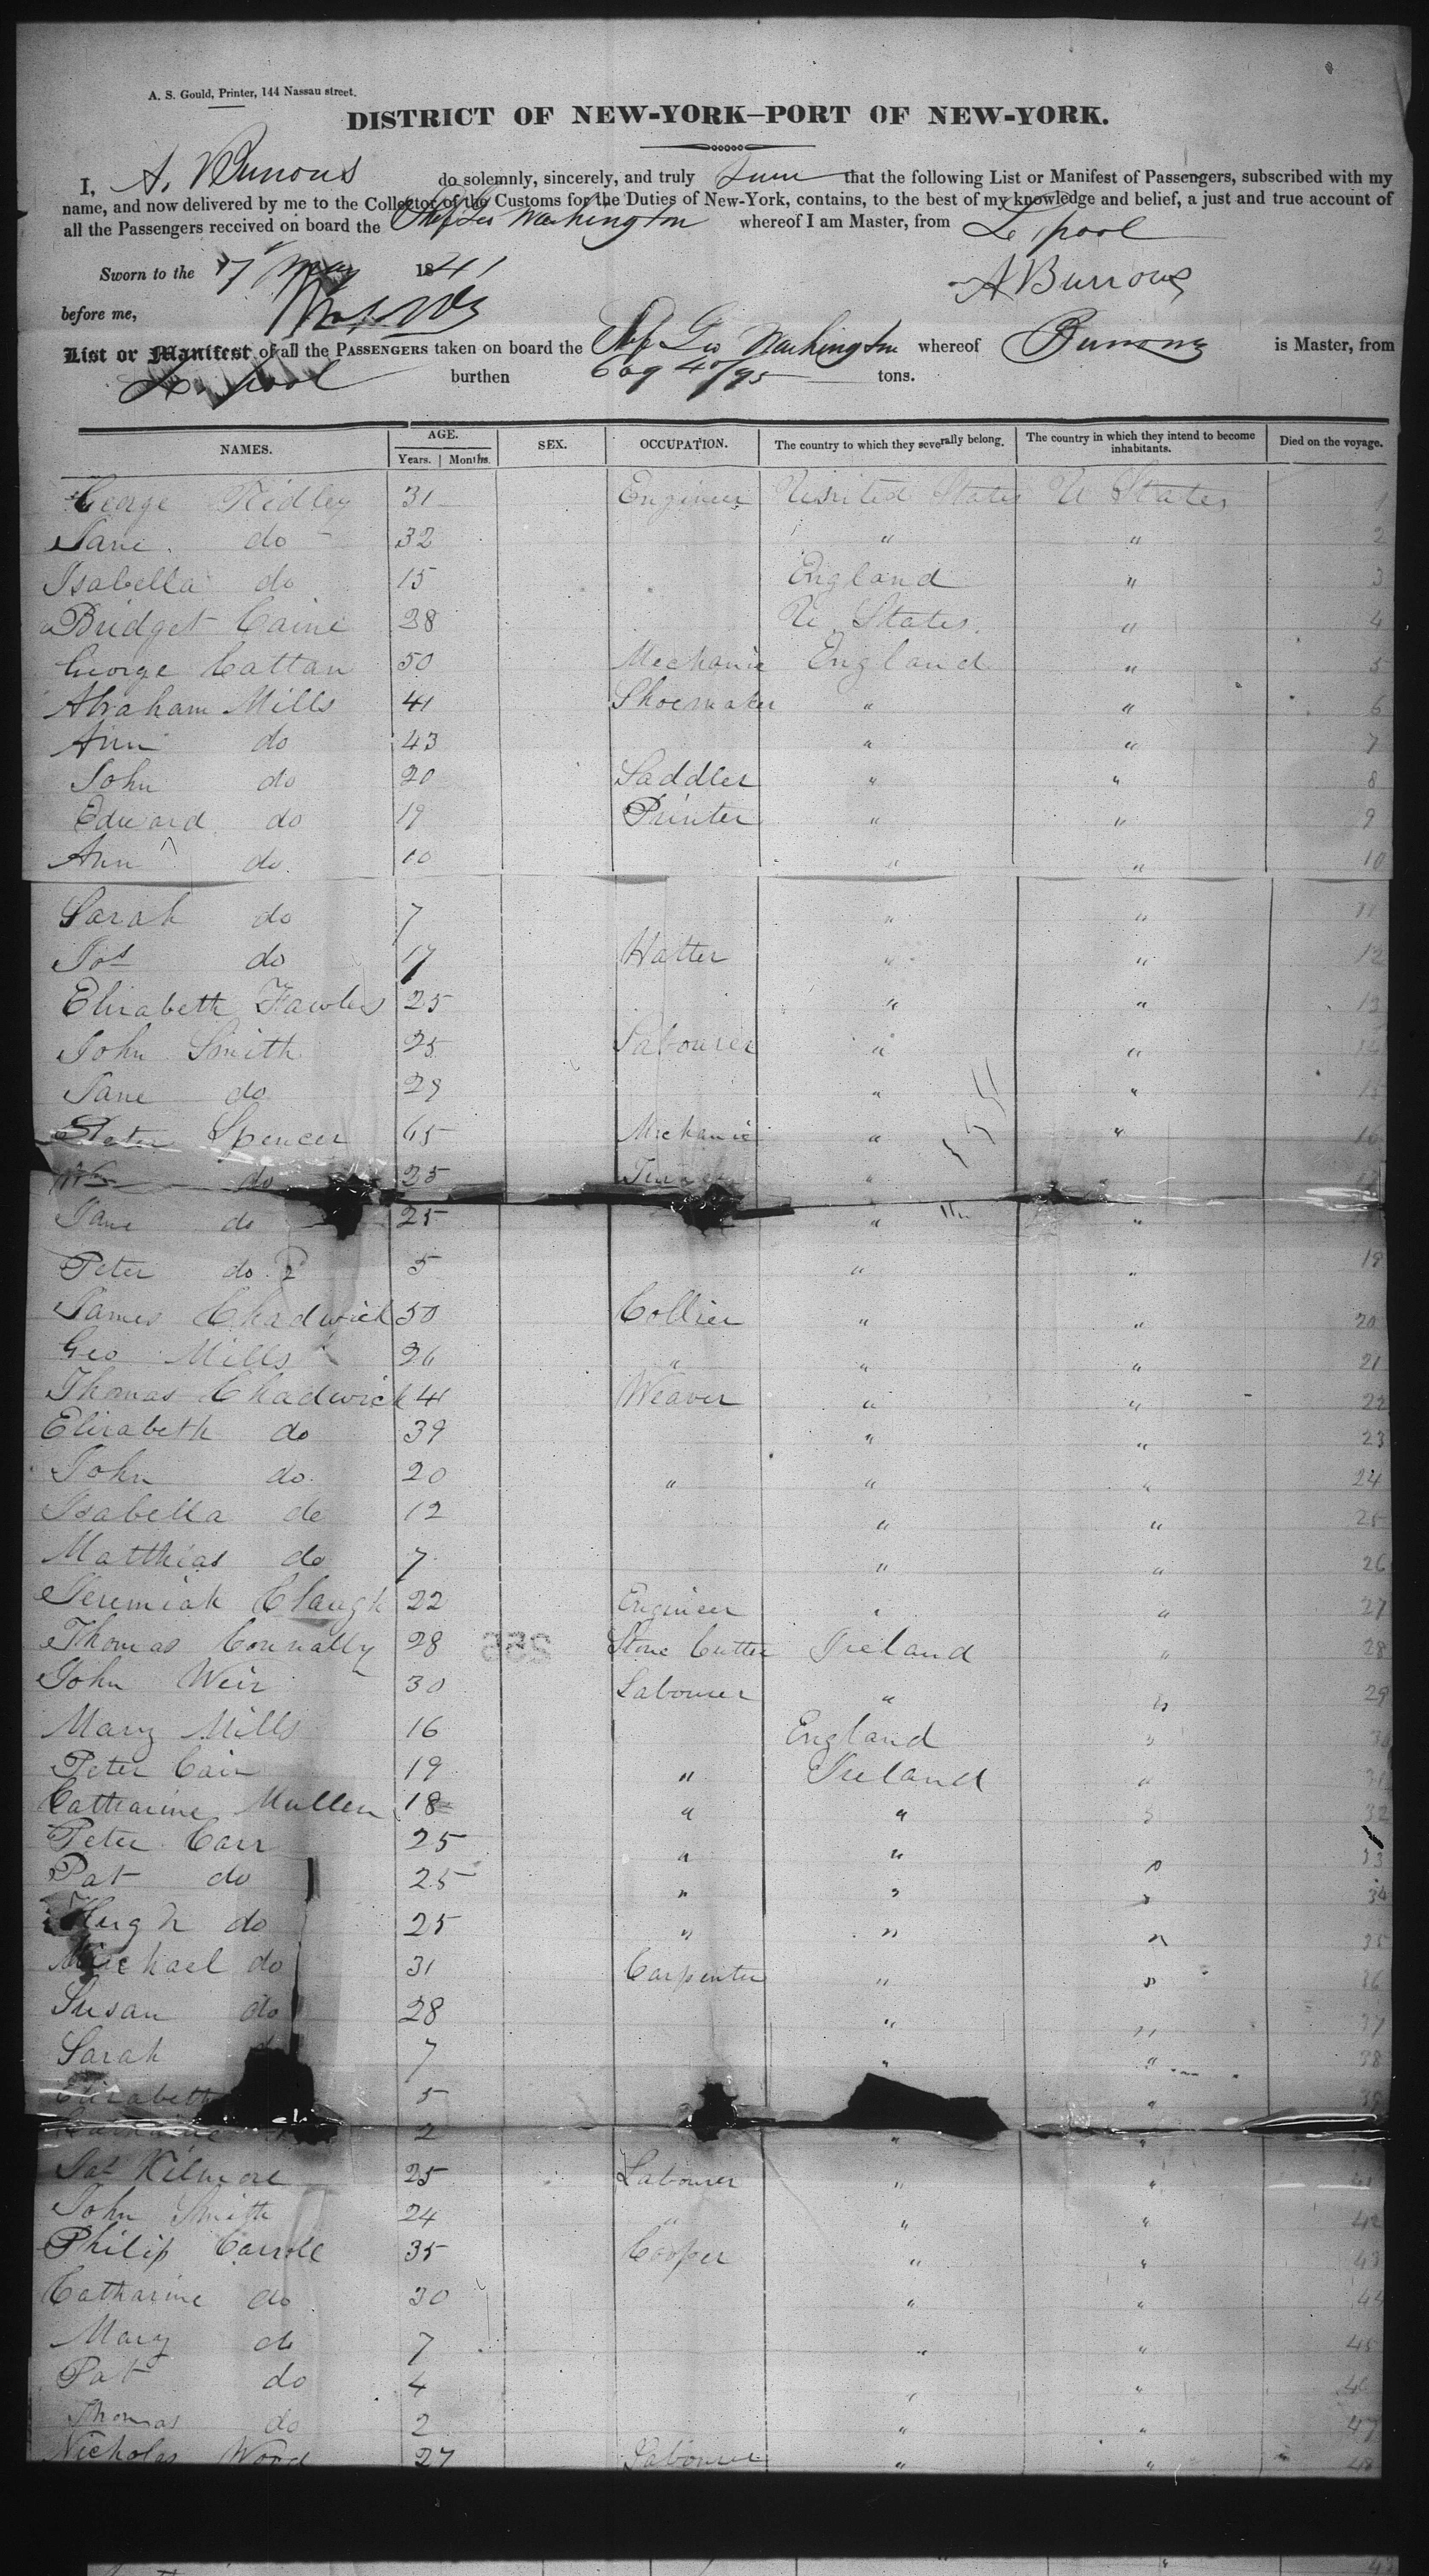 A. S. Gould, Printer, 144 Nassau street.
DISTRICT OF NEW-YORK—PORT OF NEW-YORK.
I, A. Burrows do solemnly, sincerely, and truly that the following List or Manifest of Passengers, subscribed with my
name, and now delivered by me to the Collector of the Customs for the Duties of New-York, contains, to the best of my knowledge and belief, a just and true account of
all the Passengers received on board the Ship Geo Washington whereof I am Master, from L pool
Sworn to the 17 May 1841 A Burrows
before me,
List or Manifest of all the PASSENGERS taken on board the Ship Geo Washington whereof Burrows is Master, from
L. pool burthen 609 40/95 tons.
NAMES. AGE. SEX. OCCUPATION. The country to which they severally belong. The country in which they intend to become inhabitants. Died on the voyage.
Years. Months.
George Ridley 31 Engineer United States U States 1
Jane do 32 " " 2
Isabella do 15 England " 3
Bridget Caine 28 U States. " 4
George Cattan 50 Mechanic England " 5
Abraham Mills 41 Shoemaker " " 6
Ann do 43 " " 7
John do 20 Saddler " " 8
Edward do 19 Printer " " 9
Ann do. 10 " " 10
Sarah do 7 " " 11
Jos do 17 Hatter " " 12
Elizabeth Fawles 25 " " 13
John Smith 25 Labourer " " 14
Jane do 29 " " 15
Peter Spencer 65 Mechanic " " 16
Wm do 25 " "
Jane do 25 " "
Peter do. 2 5 " " 19
James Chadwick 50 Collier " " 20
Geo Mills 26 " " " 21
Thomas Chadwick 41 Weaver " " 22
Elizabeth do 39 " " 23
John do. 20 " " " 24
Isabella do 12 " " 25
Matthias do 7 " " 26
Jeremiah Claugh 22 Engineer " " 27
Thomas Connally 28 Stone Cutter Ireland " 28
John Weir 30 Labourer " " 29
Mary Mills 16 England " 30
Peter Cain 19 " Ireland " 31
Catharine Mullen 18 " " " 32
Peter Carr 25 " " " 33
Pat do 25 " " " 34
Hugh do 25 " " " 35
Michael do 31 Carpenter " " 36
Susan do 28 " " 37
Sarah 7 " " 38
Elizabeth 5 " 39
Catharine 2 " "
Pat Kilmore 25 Labourer " " 41
John Smith 24 " " " 42
Philip Carroll 35 Cooper " " 43
Catharine do 30 " " 44
Mary do 7 " " 45
Pat do 4 " " 46
Thomas do 2 " " 47
Nicholas Wood 27 Labourer " " 48